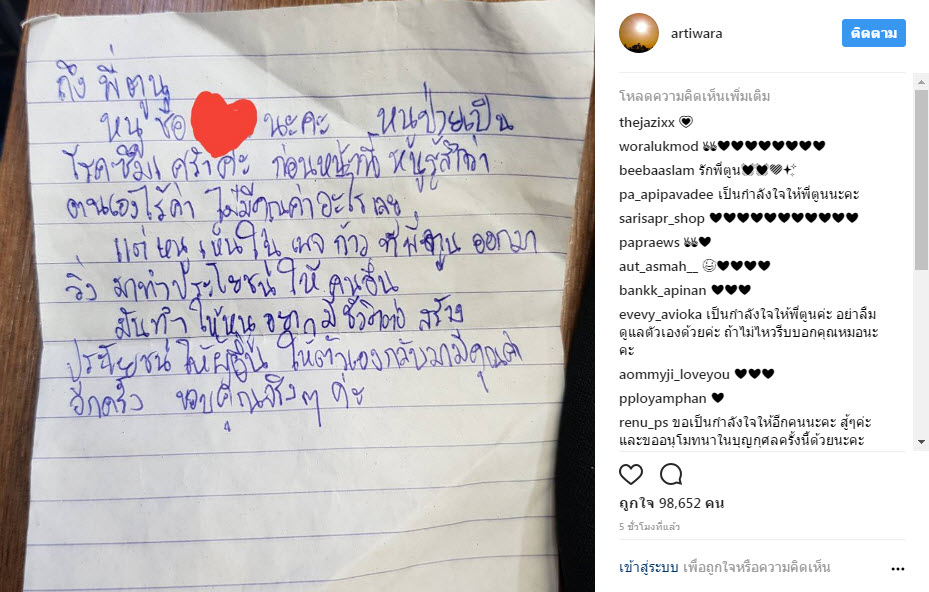 ถึง พี่ตูน
หนู ชื่อ นะคะ หนูป่วยเป็น
โรคซึมเศร้าค่ะ ก่อนหน้านี้ หนูรู้สึกว่า
ตนเองไร้ค่า ไม่มีคุณค่าอะไรเลย
แต่ หนูเห็นใน เพจ ก้าว ที่พี่ตูน ออกมา
วิ่ง มาทำประโยชน์ ให้ คนอื่น
มันทำ ให้หนู อยาก มีชีวิตต่อ สร้าง
ประโยชน์ ให้ผู้อื่น ให้ตัวเองกลับมามีคุณค่า
อีกครั้ง ขอบคุณจริงๆ ค่ะ
artiwara
ติดตาม
โหลดความคิดเห็นเพิ่มเติม
thejazixx 💗
woralukmod 🐰♥♥♥♥♥♥♥♥
beebaaslam รักพี่ตูน
pa_apipavadee เป็นกำลังใจให้พี่ตูนนะคะ
sarisapr_shop ♥♥♥♥♥♥♥♥♥♥♥
papraews ♥
aut_asmah__ ♥♥♥♥
bankk_apinan ♥♥♥
evevy_avioka เป็นกำลังใจให้พี่ตูนค่ะ อย่าลืม
ดูแลตัวเองด้วยค่ะ ถ้าไม่ไหวรีบบอกคุณหมอนะ
คะ
aommyji_loveyou ♥♥♥
pployamphan ♥
renu_ps ขอเป็นกำลังใจให้อีกคนนะคะ สู้ๆค่ะ
และขออนุโมทนาในบุญกุศลครั้งนี้ด้วยนะคะ
ถูกใจ 98,652 คน
5 ชั่วโมงที่แล้ว
เข้าสู่ระบบ เพื่อถูกใจหรือความคิดเห็น